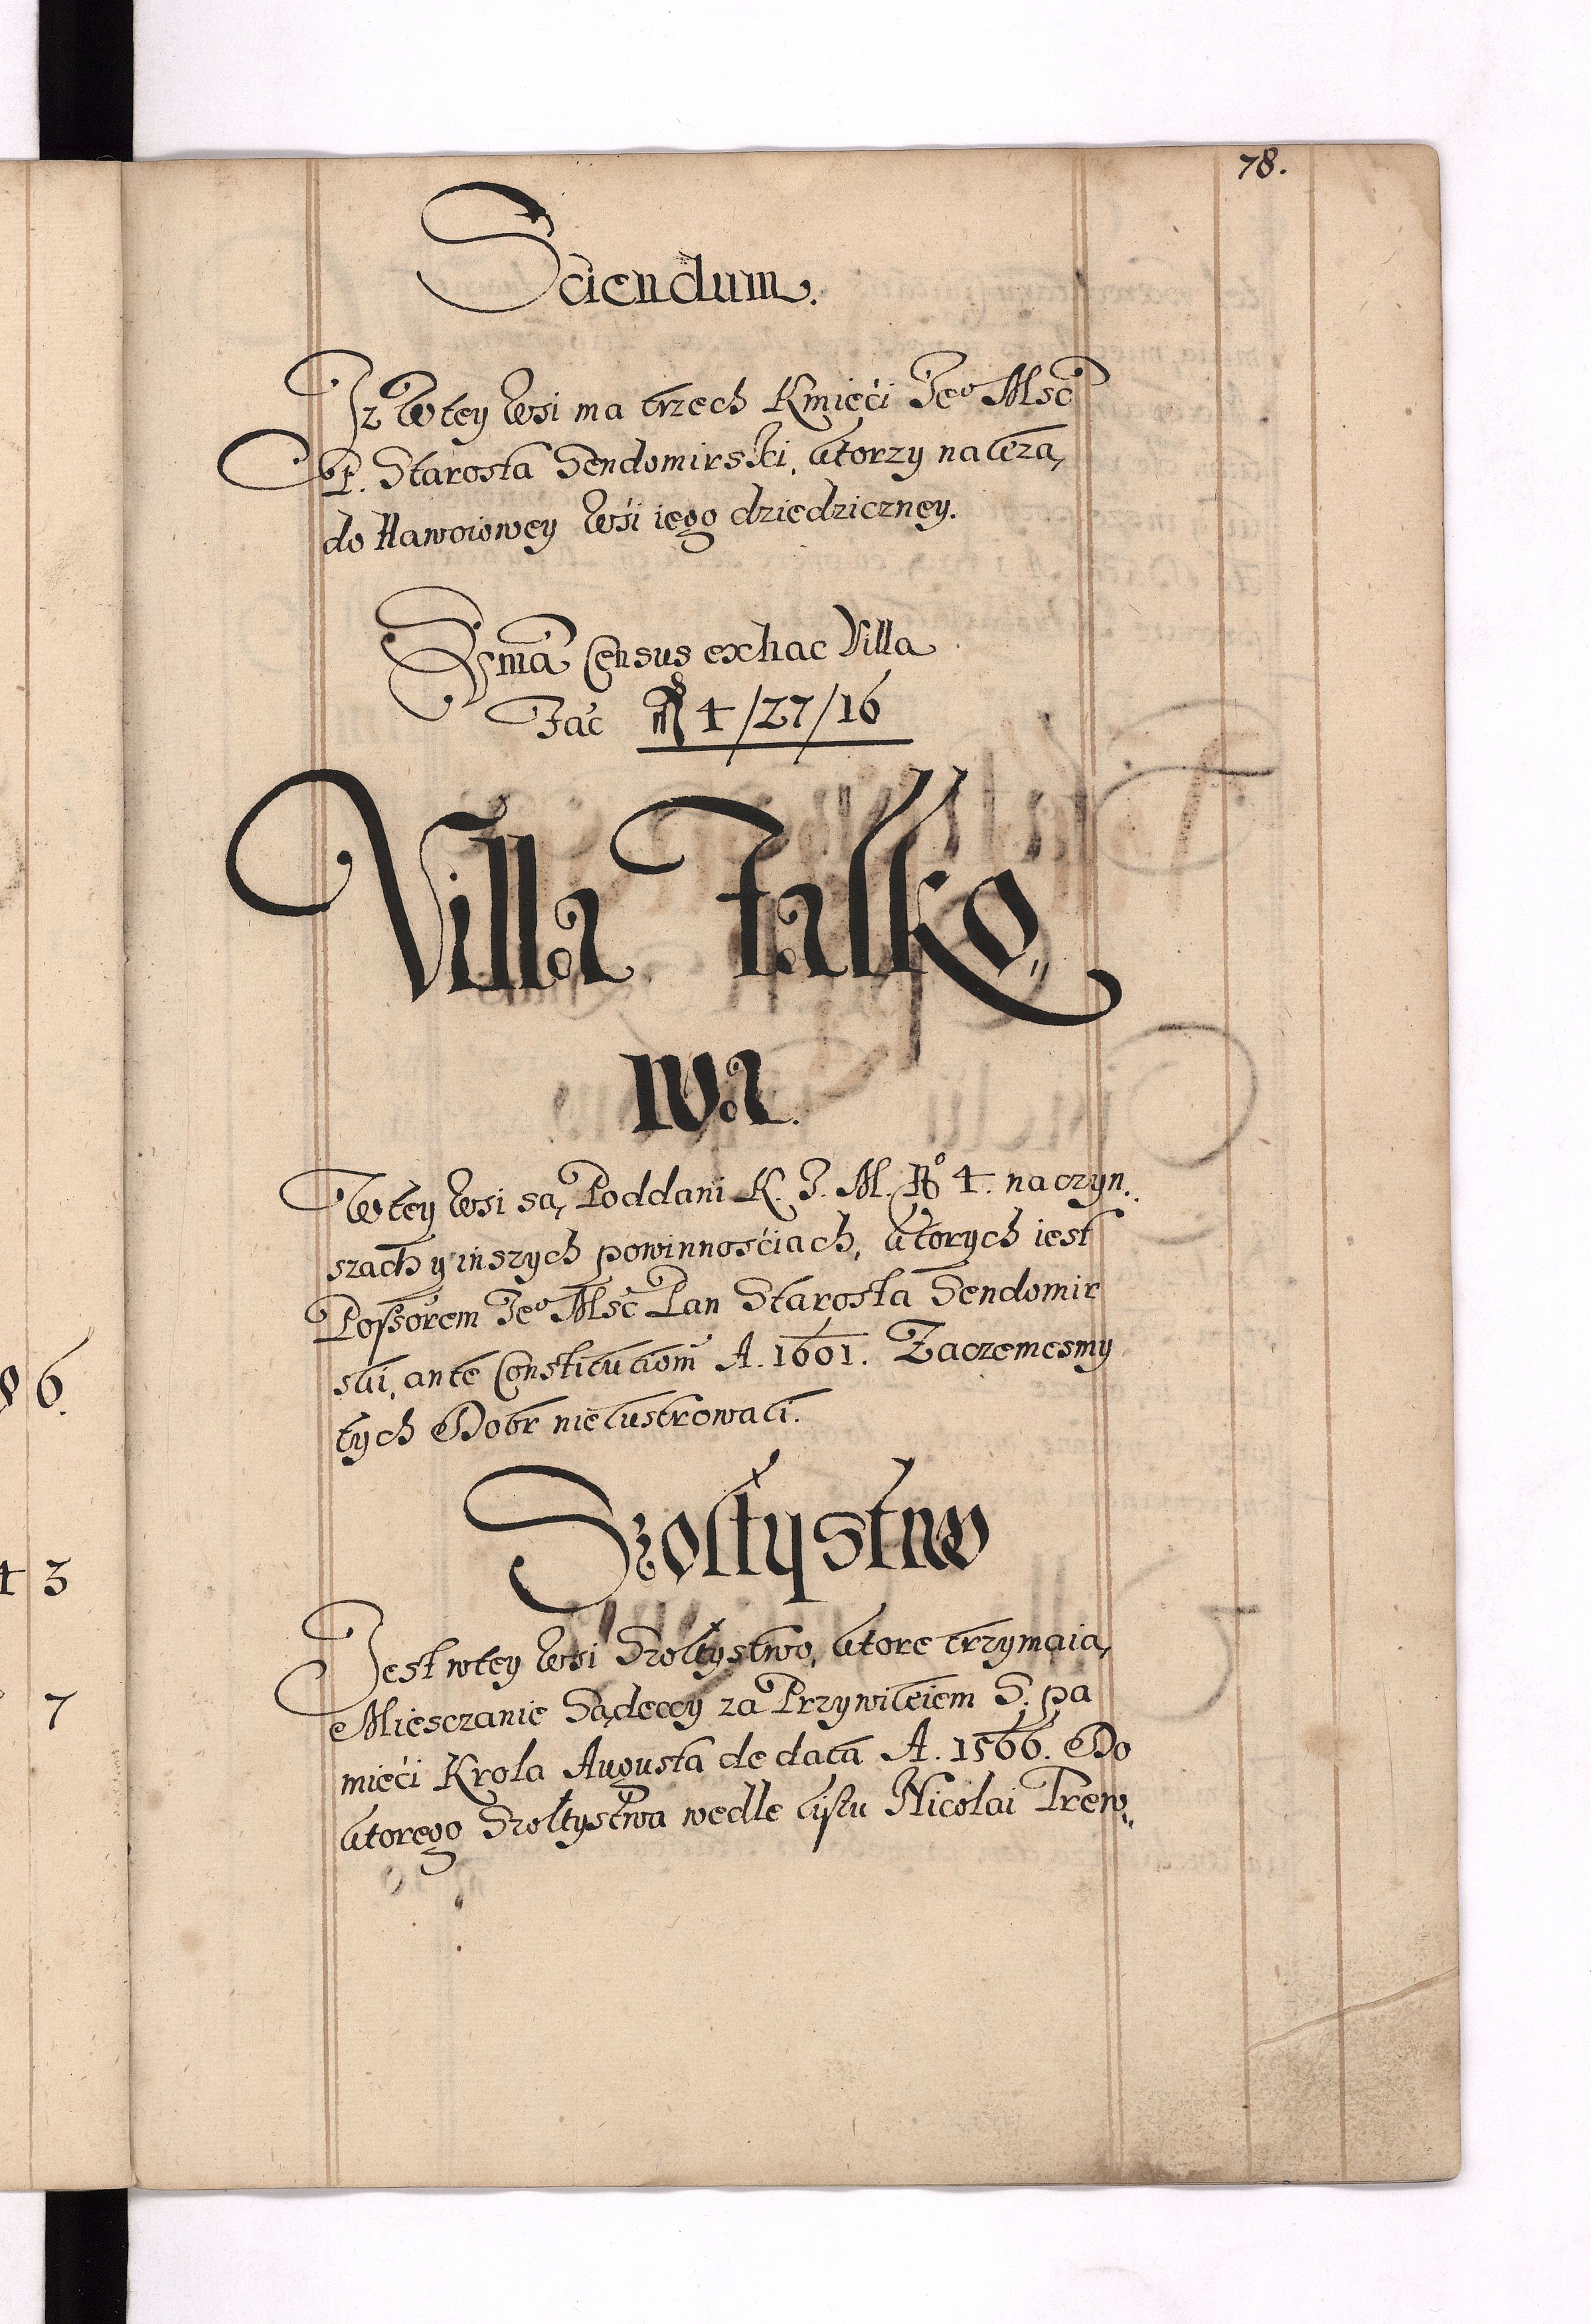 78.
Sciendum.
Iz wtey wsi ma trzech Kmięći Jeo Msć
P. Starosta Sendomirski, ktorzy należą
do Nawoiowey wśi iego dziedziczney.
Sma Census ex hac Villa
Fac 4/27/16
Villa Falko„
wa.
Wtey wsi są Poddani K. J. M. No 4. na czyn„
szach y inszych powinnośćiach, ktorych iest
Possorem Jeo Msć Pan Starosta Sendomir
ski, ante Constituciom A. 1601. Zaczemesmy
tych Dobr nie lustrowali.
Szołtystwo
Jest wtey wsi Szołtystwo, ktore trzymaią
Miesczanie Sądeccy za Przywileiem S. pa
mięći Krola Augusta de data A. 1566. Do
ktorego Szołtystwa wedle listu Nicolai Trew„
86.
43
7